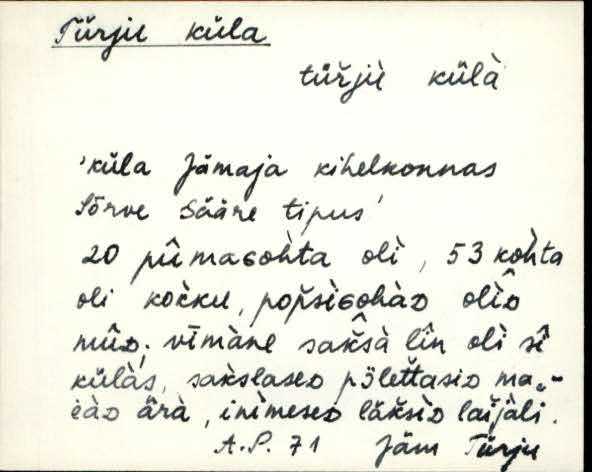 Türju küla
tüřjù külà
'küla Jämaja kihelkonnas
Sõrve sääre tipus'
20 pîmaɢoh̀ta olì, 53 koh̀ta
oli kok̀ku, pop̆siɢohàᴅ olîᴅ
mûᴅ; vīmàne sak̆sà lîn olì sî
külàs, sak̀slaseᴅ põlet̆tasiᴅ ma„-
ɢàᴅ ärà, inìmeseᴅ läk̆sìᴅ laĭjàli.
A.P. 71 Jäm Türju